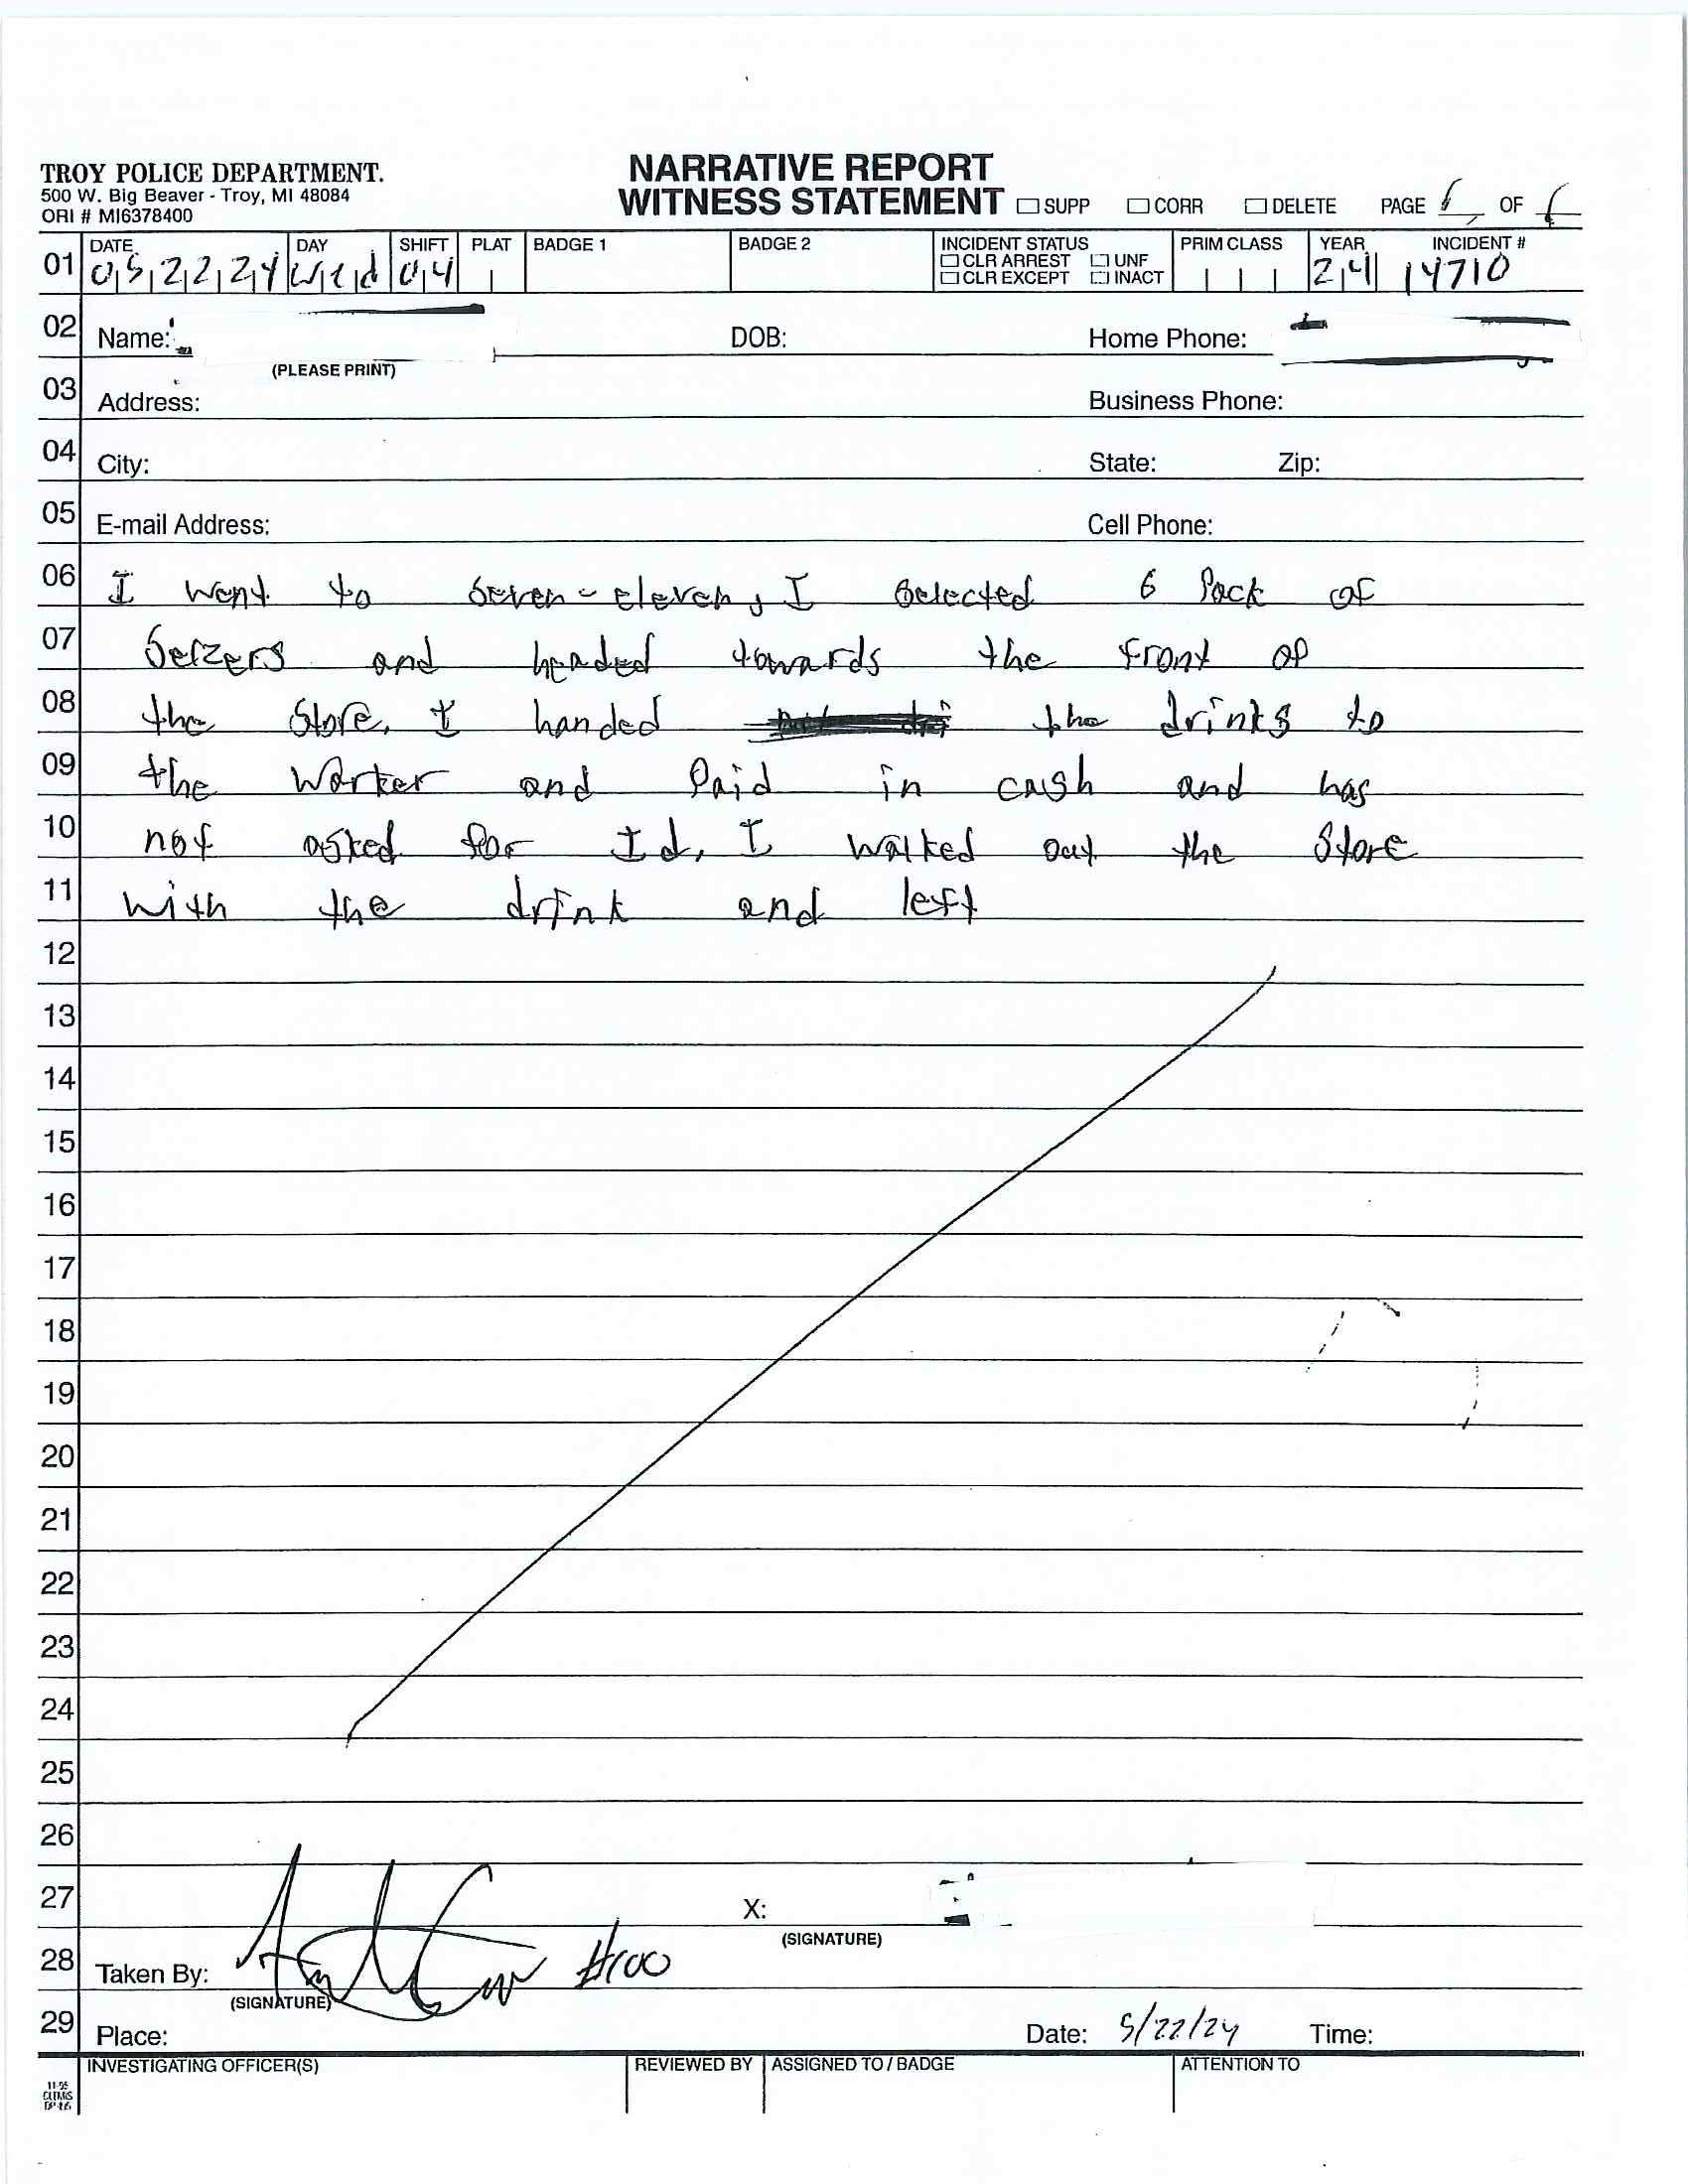 TROY POLICE DEPARTMENT.
500 W. Big Beaver - Troy, MI 48084
ORI # MI6378400
NARRATIVE REPORT
WITNESS STATEMENT SUPP CORR DELETE PAGE 1 OF 1
01 DATE 052224 DAY Wed SHIFT 04 PLAT BADGE 1 BADGE 2 INCIDENT STATUS CLR ARREST UNF CLR EXCEPT INACT PRIM CLASS YEAR 24 INCIDENT # 14710
02 Name: DOB: Home Phone:
(PLEASE PRINT)
03 Address: Business Phone:
04 City: State: Zip:
05 E-mail Address: Cell Phone:
06 I went to Seven-eleven, I Selected 6 Pack of
07 Selzers and headed towards the front of
08 the Store. I handed the drinks to
09 the Worker and Paid in cash and has
10 not asked for Id, I walked out the Store
11 with the drink and left
12
13
14
15
16
17
18
19
20
21
22
23
24
25
26
27 X:
(SIGNATURE)
28 Taken By: #100
(SIGNATURE)
29 Place: Date: 5/22/24 Time:
INVESTIGATING OFFICER(S) REVIEWED BY ASSIGNED TO / BADGE ATTENTION TO
11-95
CLEMIS